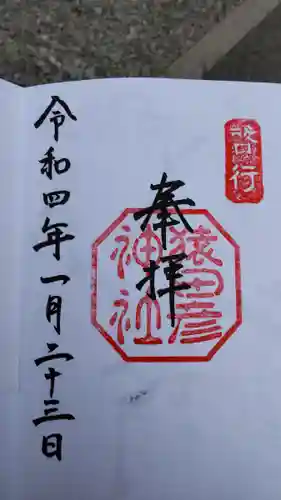 奉拝
猿田彦
神社
令和四年一月二十三日